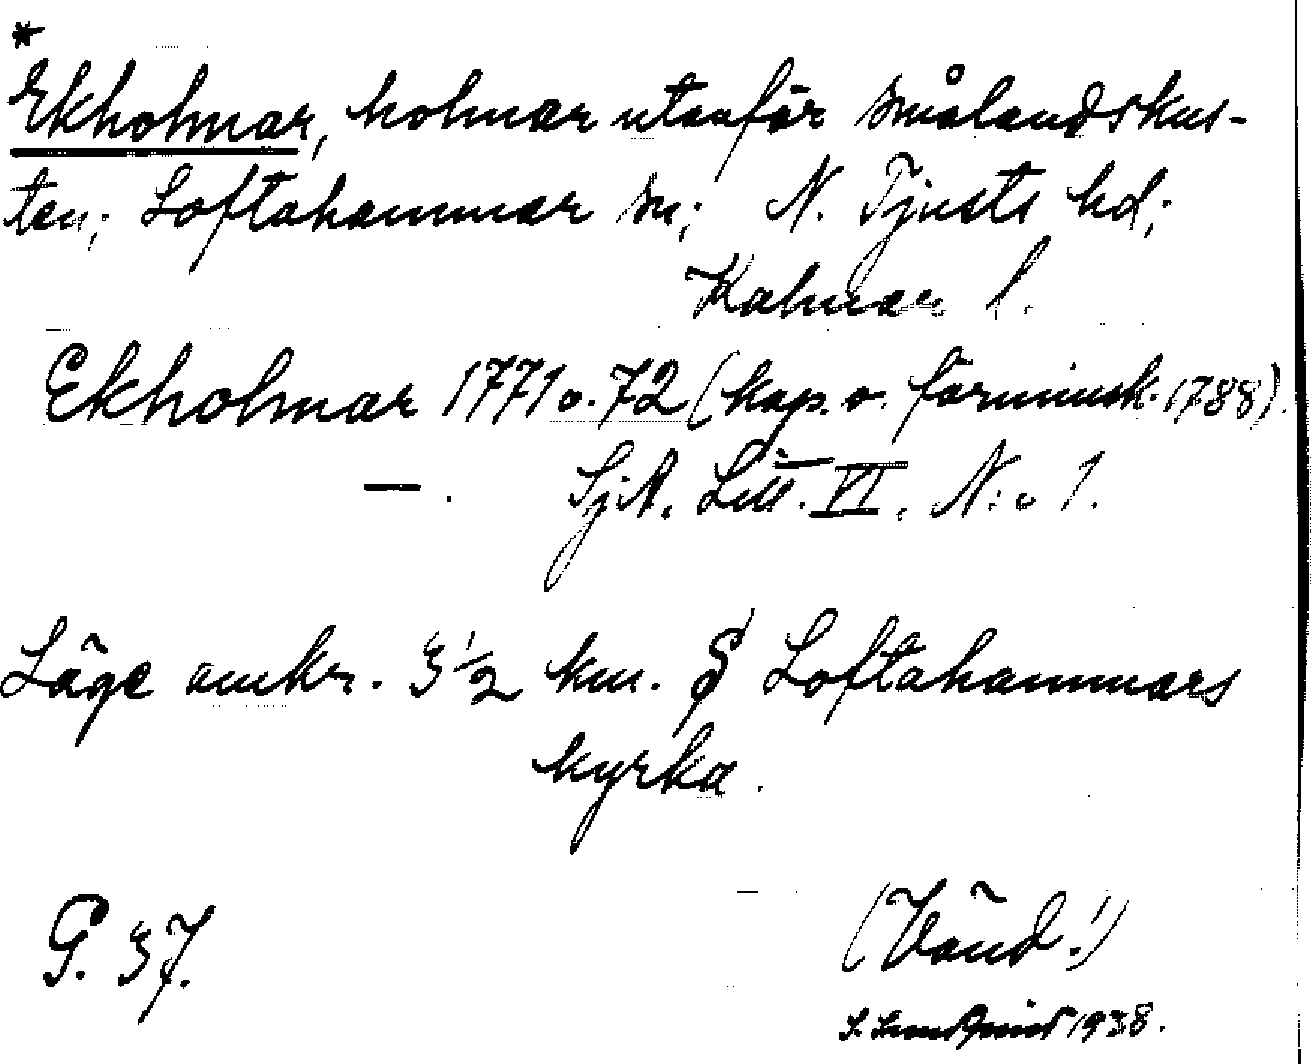 *
Ekholmar, holmar utanför smålandskus-
ten; Loftahammar sn; N. Tjusts hd;
Kalmar l.
Ekholmar 1771 o. 72 (kop. o. förminsk. 1788).
— . SjA. Litt. VI. N:o 1.
Läge omkr. 3 1/2 km. S Loftahammars
kyrka.
G. 37. (Vänd!)
1938.